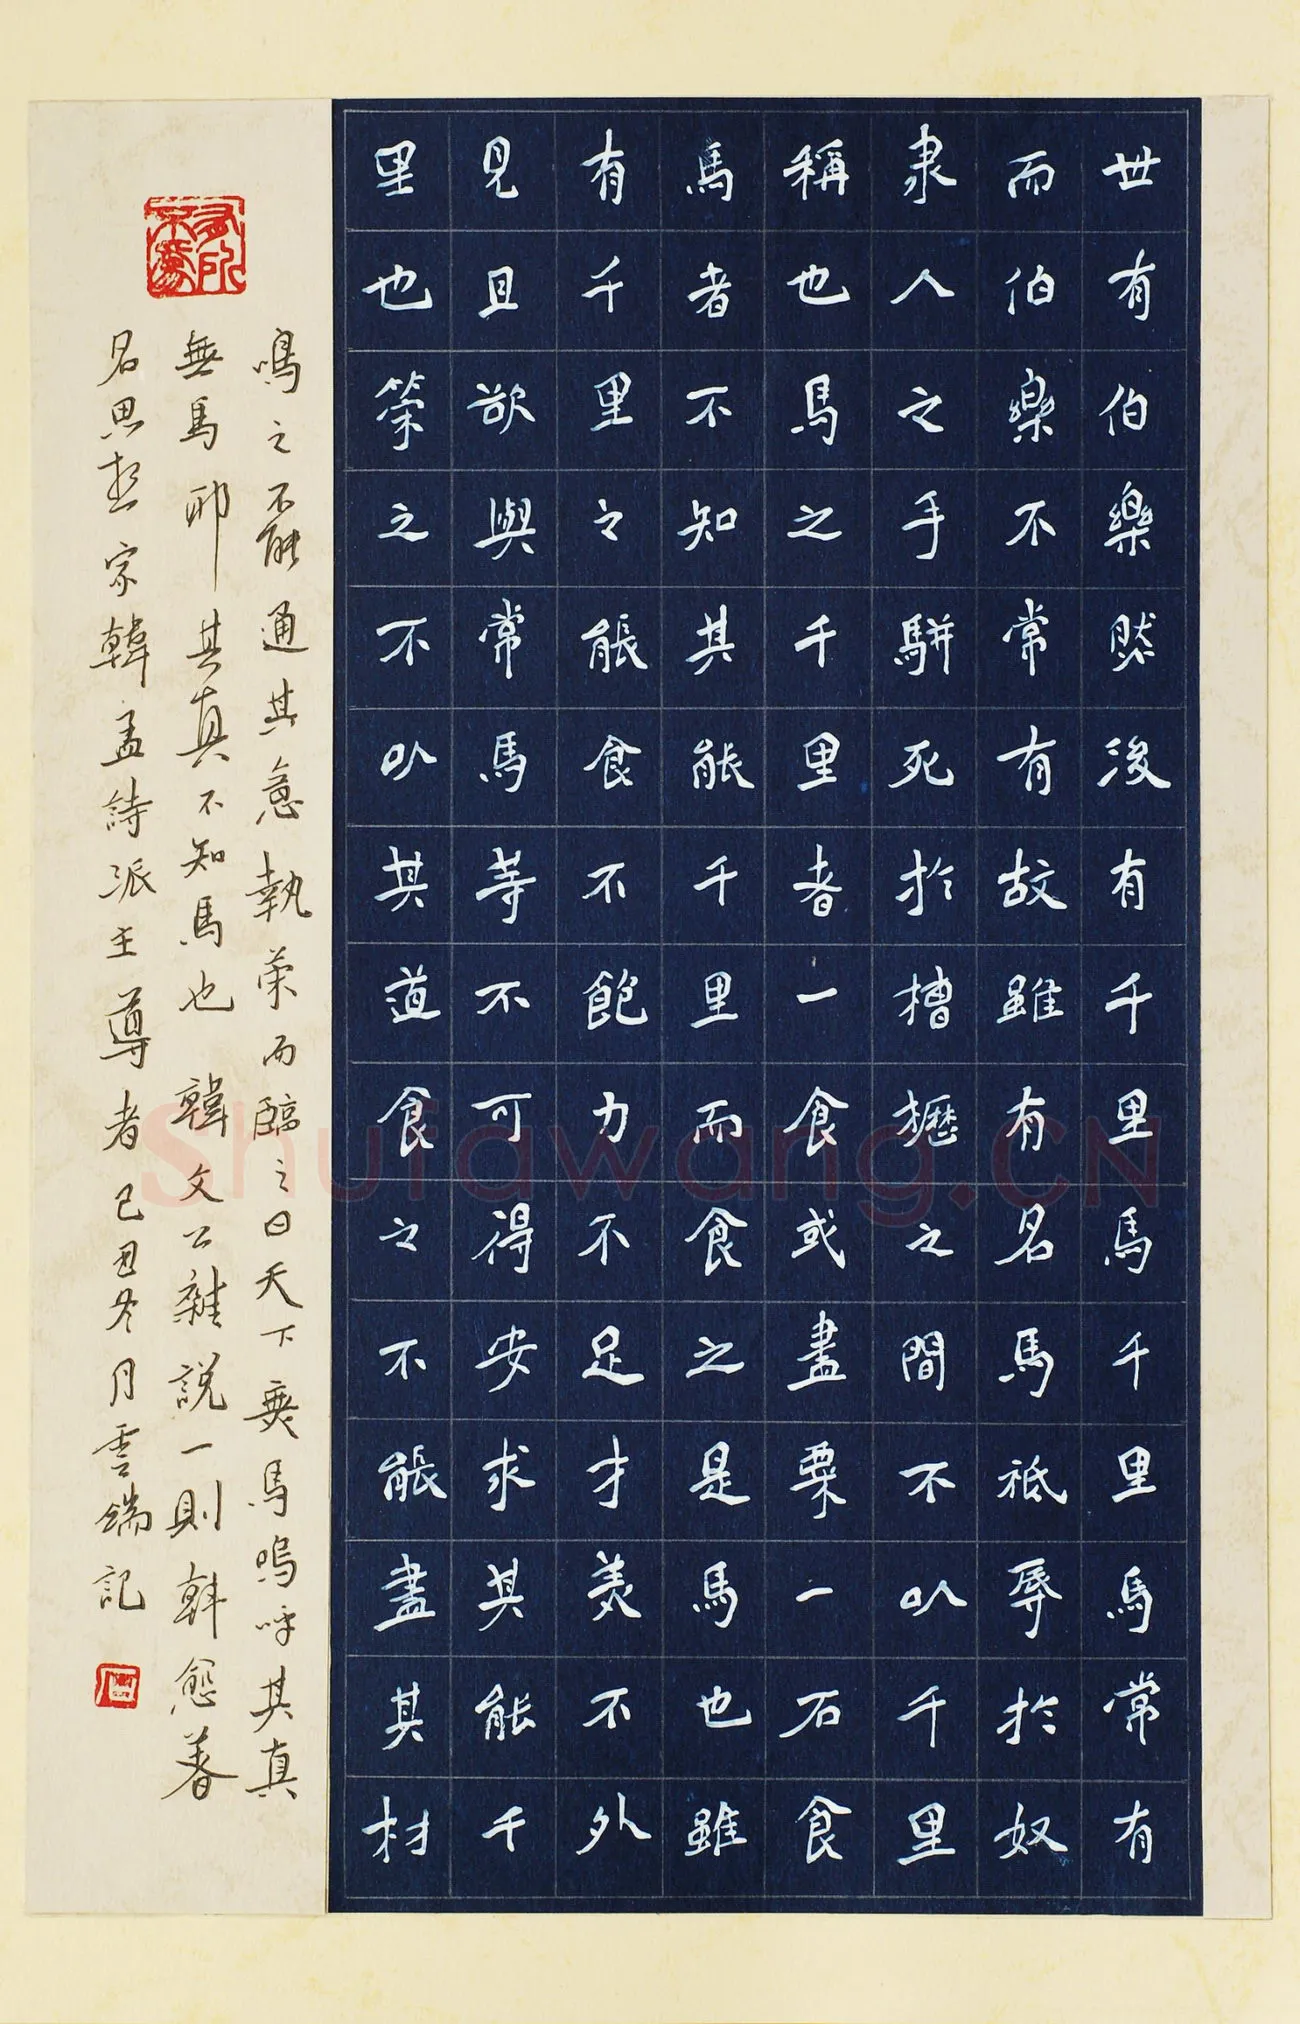 世有伯樂然後有千里馬千里馬常有
而伯樂不常有故雖有名馬祗辱於奴
隶人之手駢死於槽櫪之間不以千里
稱也馬之千里者一食或盡粟一石食
馬者不知其能千里而食之是馬也雖
有千里之能食不飽力不足才美不外
見且欲與常馬等不可得安求其能千
里也策之不以其道食之不能盡其材
鳴之不能通其意執策而臨之曰天下無馬嗚呼其真
無馬邪其真不知馬也韓文公雜説一則韓愈著
名思想家韓孟詩派主導者己丑冬月雲端記
Shufawang.CN